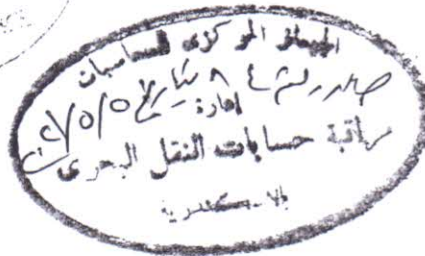 الجهاز المركزى للمحاسبات
صادر رقم بتاريخ
إدارة
مراقبة حسابات النقل البحرى
بالاسكندرية